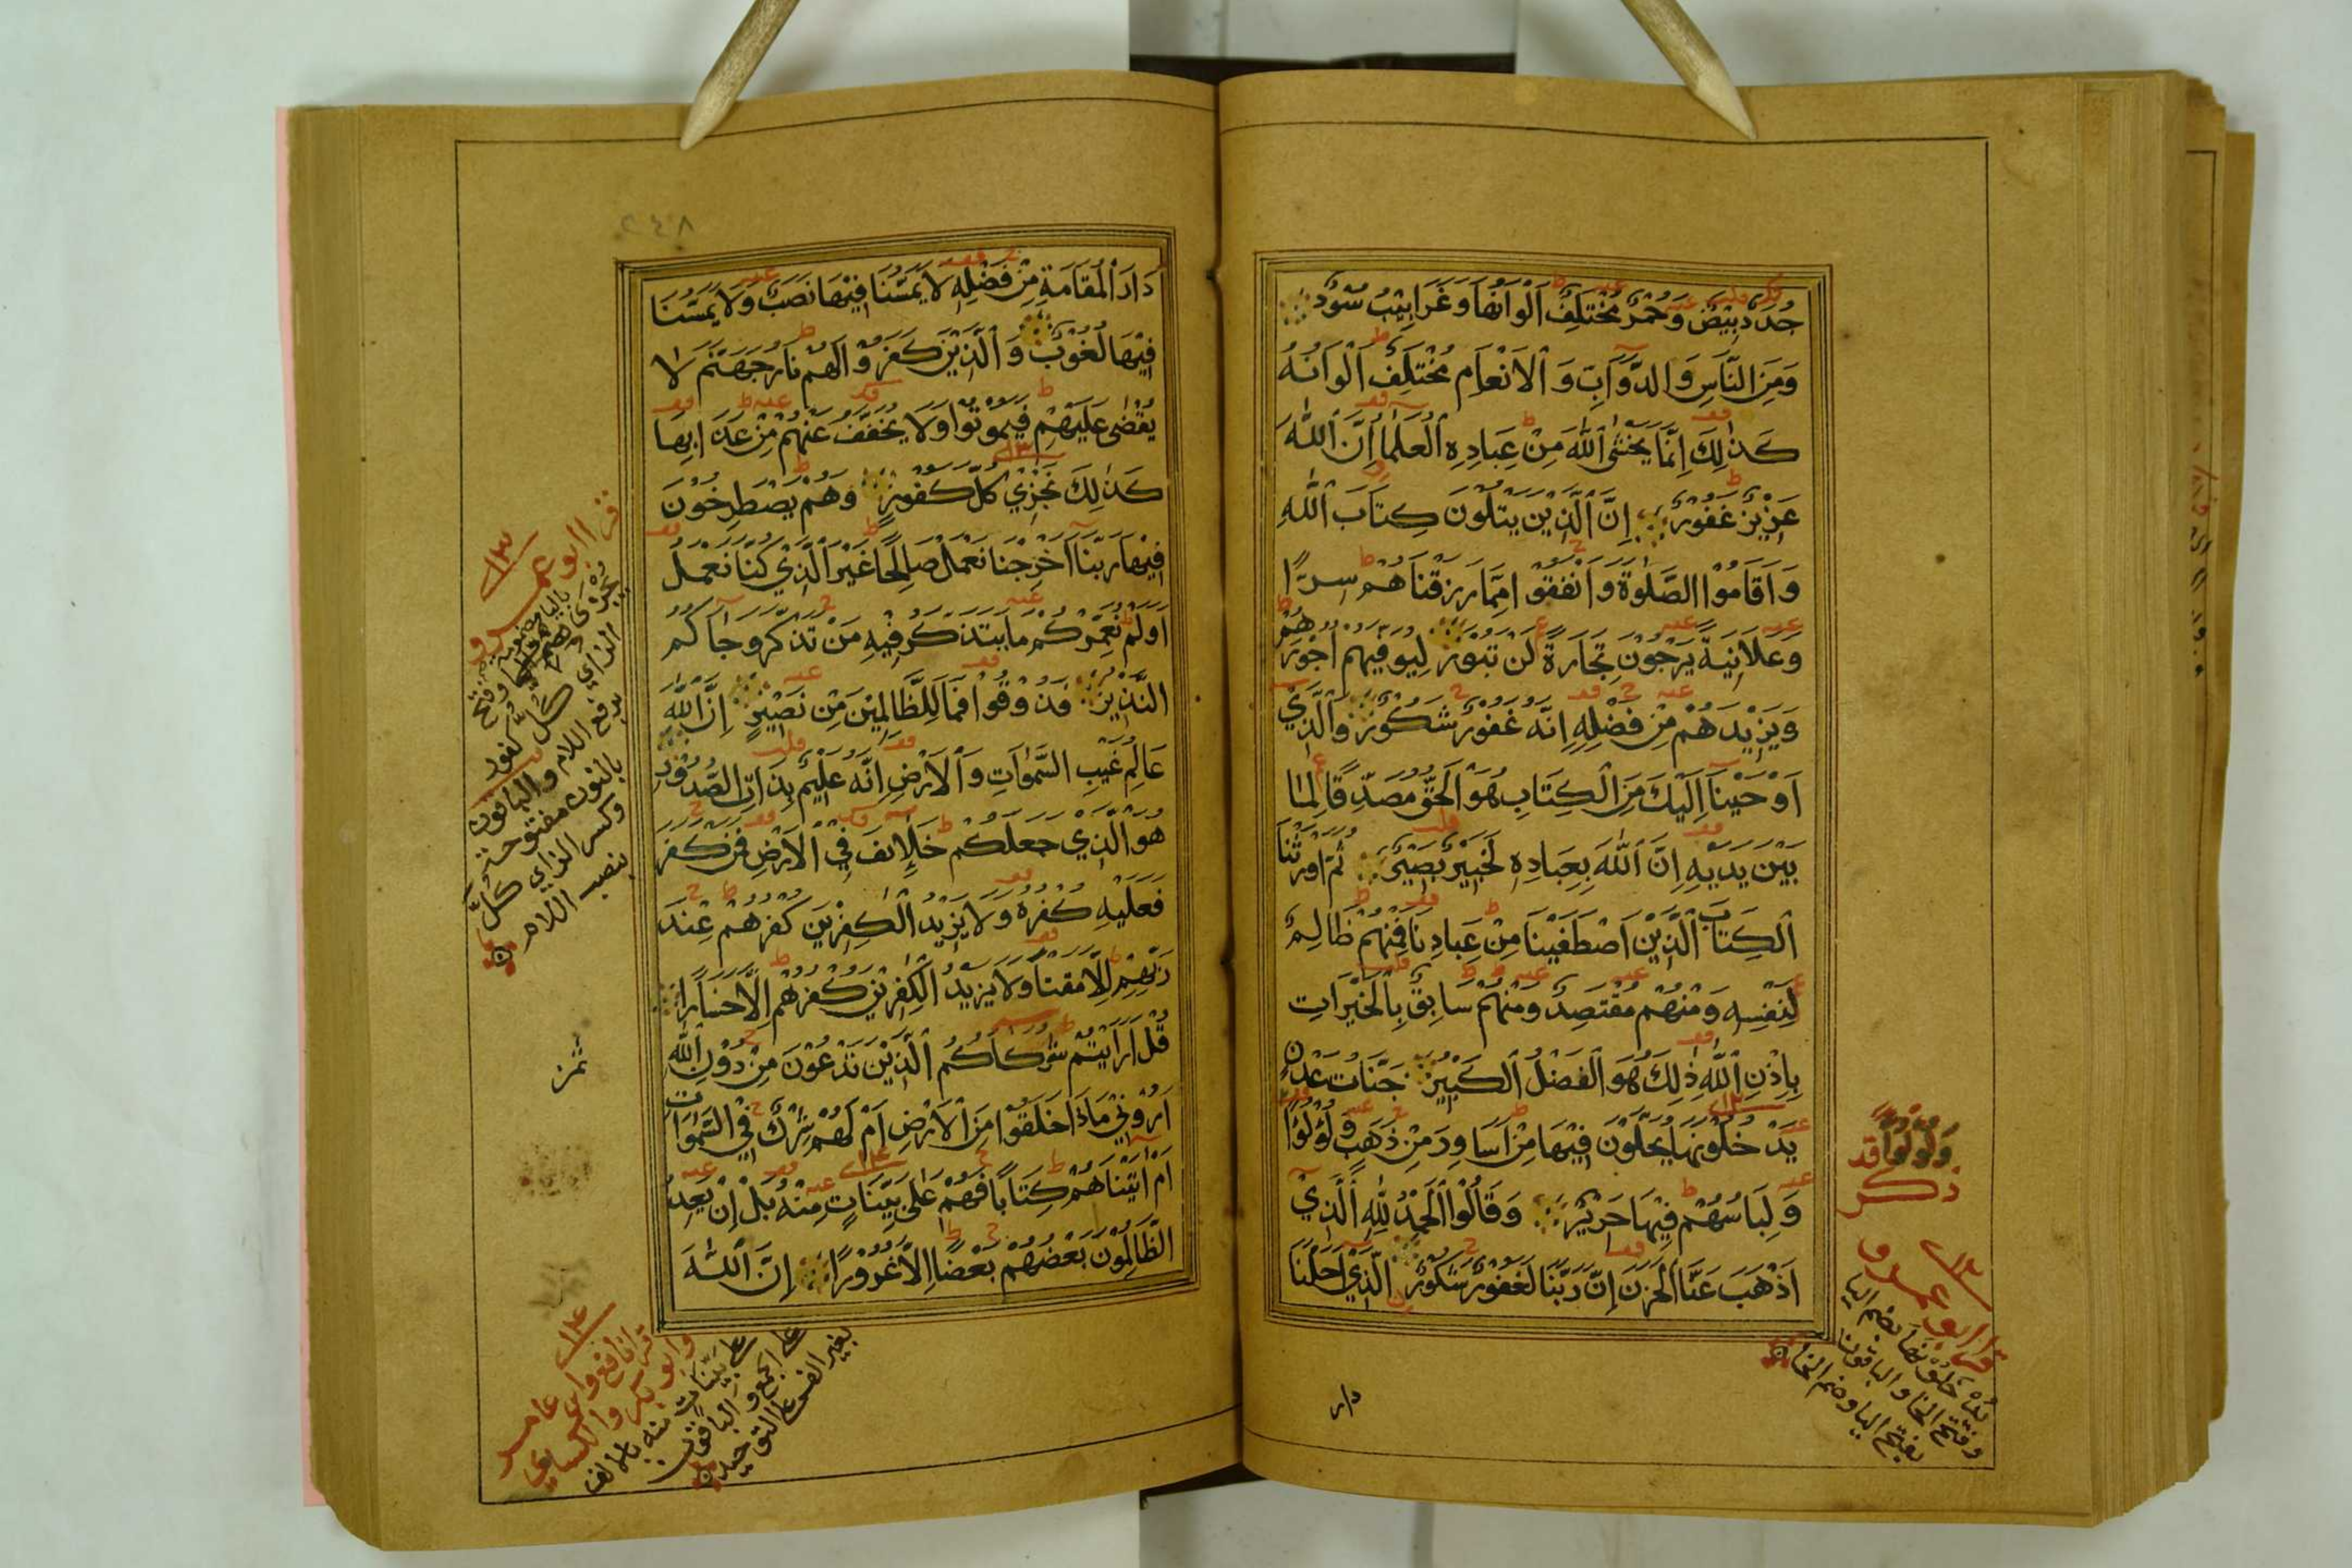 جُدَدٌ بِيْضٌ وَحُمْرٌ مُخْتَلِفٌ اَلْوَانُهَا وَغَرَابِيْبُ سُوْدٌ
وَمِنَ النَّاسِ وَالدَّوَآبِّ وَالْاَنْعَامِ مُخْتَلِفٌ اَلْوَانُهُ
كَذٰلِكَ اِنَّمَا يَخْشَى اللّٰهَ مِنْ عِبَادِهِ الْعُلَمَآ اِنَّ اللّٰهَ
عَزِيْزٌ غَفُوْرٌ اِنَّ الَّذِيْنَ يَتْلُوْنَ كِتَابَ اللّٰهِ
وَاَقَامُوْا الصَّلٰوةَ وَاَنْفَقُوْا مِمَّا رَزَقْنَاهُمْ سِرًّا
وَعَلَانِيَةً يَرْجُوْنَ تِجَارَةً لَنْ تَبُوْرَ لِيُوَفِّيَهُمْ اُجُوْرَهُمْ
وَيَزِيْدَهُمْ مِنْ فَضْلِهِ اِنَّهُ غَفُوْرٌ شَكُوْرٌ وَالَّذِيْ
اَوْحَيْنَآ اِلَيْكَ مِنَ الْكِتَابِ هُوَ الْحَقُّ مُصَدِّقًا لِمَا
بَيْنَ يَدَيْهِ اِنَّ اللّٰهَ بِعِبَادِهِ لَخَبِيْرٌ بَصِيْرٌ ثُمَّ اَوْرَثْنَا
الْكِتَابَ الَّذِيْنَ اصْطَفَيْنَا مِنْ عِبَادِنَا فَمِنْهُمْ ظَالِمٌ
لِنَفْسِهِ وَمِنْهُمْ مُقْتَصِدٌ وَمِنْهُمْ سَابِقٌ بِالْخَيْرَاتِ
بِاِذْنِ اللّٰهِ ذٰلِكَ هُوَ الْفَضْلُ الْكَبِيْرُ جَنَّاتُ عَدْنٍ
يَدْخُلُوْنَهَا يُحَلَّوْنَ فِيْهَا مِنْ اَسَاوِرَ مِنْ ذَهَبٍ وَلُؤْلُؤًا
وَلِبَاسُهُمْ فِيْهَا حَرِيْرٌ وَقَالُوْا الْحَمْدُ لِلّٰهِ الَّذِيْ
اَذْهَبَ عَنَّا الْحَزَنَ اِنَّ رَبَّنَا لَغَفُوْرٌ شَكُوْرٌ الَّذِيْ اَحَلَّنَا
دار
قرا ابو عمرو
يدخلونها بضم اليا
وفتح الخا والباقون
بفتح اليا وضم الخا
٢٤٨
دَارَ الْمُقَامَةِ مِنْ فَضْلِهِ لَا يَمَسُّنَا فِيْهَا نَصَبٌ وَلَا يَمَسُّنَا
فِيْهَا لُغُوْبٌ وَالَّذِيْنَ كَفَرُوْا لَهُمْ نَارُ جَهَنَّمَ لَا
يُقْضٰى عَلَيْهِمْ فَيَمُوْتُوْا وَلَا يُخَفَّفُ عَنْهُمْ مِنْ عَذَابِهَا
كَذٰلِكَ نَجْزِيْ كُلَّ كَفُوْرٍ وَهُمْ يَصْطَرِخُوْنَ
فِيْهَا رَبَّنَآ اَخْرِجْنَا نَعْمَلْ صَالِحًا غَيْرَ الَّذِيْ كُنَّا نَعْمَلُ
اَوَلَمْ نُعَمِّرْكُمْ مَا يَتَذَكَّرُ فِيْهِ مَنْ تَذَكَّرَ وَجَآكُمُ
النَّذِيْرُ فَذُوْقُوْا فَمَا لِلظَّالِمِيْنَ مِنْ نَصِيْرٍ اِنَّ اللّٰهَ
عَالِمُ غَيْبِ السَّمٰوَاتِ وَالْاَرْضِ اِنَّهُ عَلِيْمٌ بِذَاتِ الصُّدُوْرِ
هُوَ الَّذِيْ جَعَلَكُمْ خَلَآئِفَ فِيْ الْاَرْضِ فَمَنْ كَفَرَ
فَعَلَيْهِ كُفْرُهُ وَلَا يَزِيْدُ الْكٰفِرِيْنَ كُفْرُهُمْ عِنْدَ
رَبِّهِمْ اِلَّا مَقْتًا وَلَا يَزِيْدُ الْكٰفِرِيْنَ كُفْرُهُمْ اِلَّا خَسَارًا
قُلْ اَرَاَيْتُمْ شُرَكَآكُمُ الَّذِيْنَ تَدْعُوْنَ مِنْ دُوْنِ اللّٰهِ
اَرُوْنِيْ مَاذَا خَلَقُوْا مِنَ الْاَرْضِ اَمْ لَهُمْ شِرْكٌ فِيْ السَّمٰوَاتِ
اَمْ اٰتَيْنَاهُمْ كِتَابًا فَهُمْ عَلٰى بَيِّنَاتٍ مِنْهُ بَلْ اِنْ يَعِدُ
الظَّالِمُوْنَ بَعْضُهُمْ بَعْضًا اِلَّا غُرُوْرًا اِنَّ اللّٰهَ
قرا ابو عمرو
يجزى باليا مضمومة وفتح
الزاي كل كفور
برفع اللام والباقون
بالنون مفتوحة
وكسر الزاي كل
بنصب اللام
ثمن
قرا نافع وابن عامر
وابو بكر والكسائي
على بينات منه بالالف
على الجمع والباقون
بغير الف على التوحيد